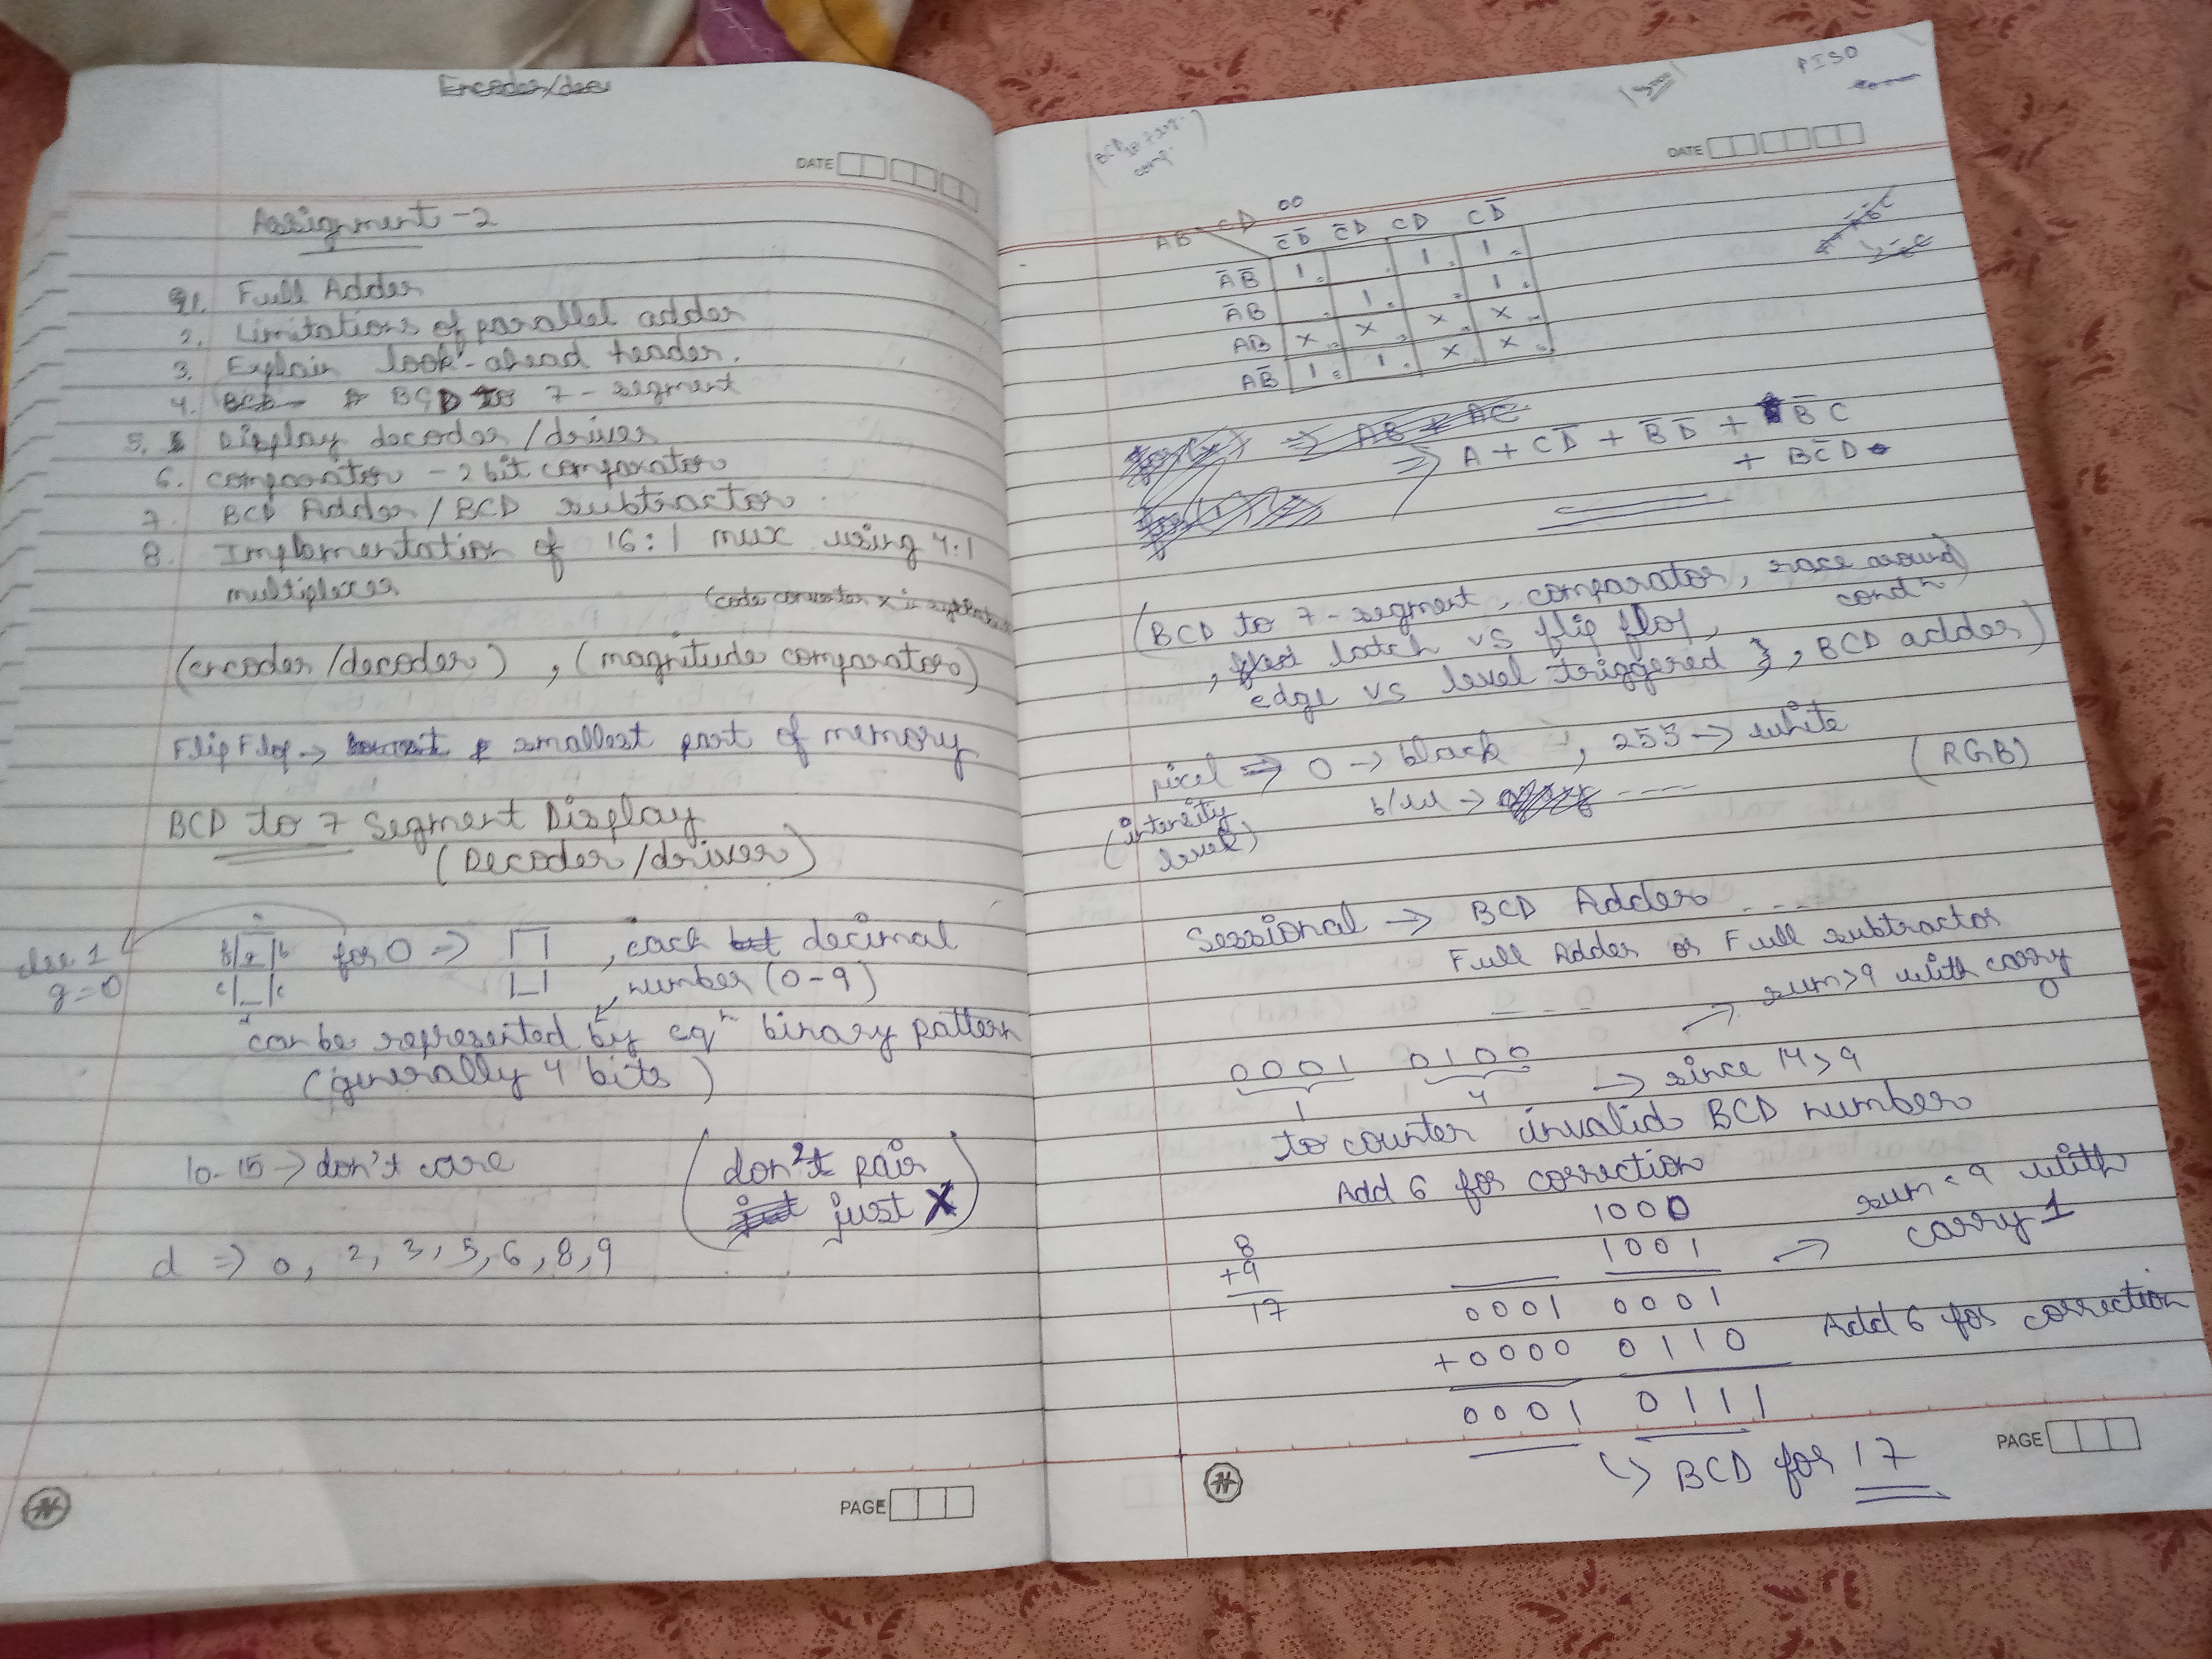 DATE
Assignment - 2
Q1. Full Adder
2. Limitations of parallel adder
3. Explain look-ahead header.
4. BCD to 7 - segment
5. Display decoder / driver
6. comparator - 2 bit comparator
7. BCD Adder / BCD subtractor
8. Implementation of 16:1 mux using 4:1
multiplexer
(code convertor x
(encoder / decoder) , (magnitude comparator)
Flip Flop → smallest part of memory
BCD to 7 Segment Display
(Decoder / driver)
else 1
g = 0
for 0 ⇒ , each decimal
number (0-9)
can be represented by eqⁿ binary pattern
(generally 4 bits)
10-15 → don't care
(don't pair
just X)
d ⇒ 0, 2, 3, 5, 6, 8, 9
PAGE
PISO
(BCD to 7 seg.
comp.)
DATE
00
AB CD C̄D̄ C̄D CD CD̄
ĀB̄ 1 1 1
ĀB 1 1
AB X X X X
AB̄ 1 1 X X
⇒ A + CD̄ + B̄D̄ + B̄C
+ BC̄D
(BCD to 7 - segment, comparator, race around
condⁿ
, latch vs flip flop,
edge vs level triggered }, BCD adder)
pixel → 0 → black , 255 → white
(intensity
level)
b/w → ----
(RGB)
Sessional → BCD Adder ----
Full Adder or Full subtractor
→ sum>9 with carry
0
0001 0100 → since 14>9
1 4
to counter invalid BCD number
Add 6 for correction
1000
8 1001 → sum<9 with
carry 1
+9
17 0001 0001
+0000 0110 Add 6 for correction
0001 0111
↳ BCD for 17
PAGE